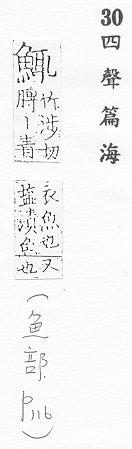 30 四聲篇海
鮿
竹涉切
膊丨青
衣魚也又
鹽漬魚也
(鱼部 P116)